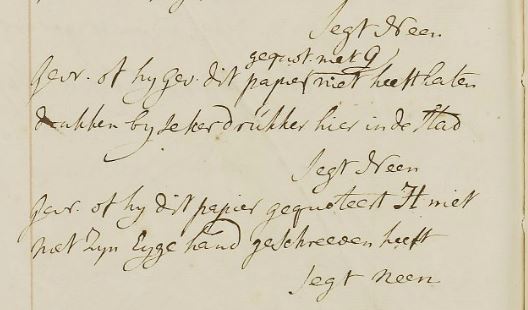 Segt Neen
gequot. met G
Gevr. of hy Gev. dit papier niet heeft laten
drukken by seker drukker hier in de stad
Segt Neen
Gevr. of hy dit papier gequoteert H niet
met Zyn Eyge hand geschreeven heeft
Segt neen